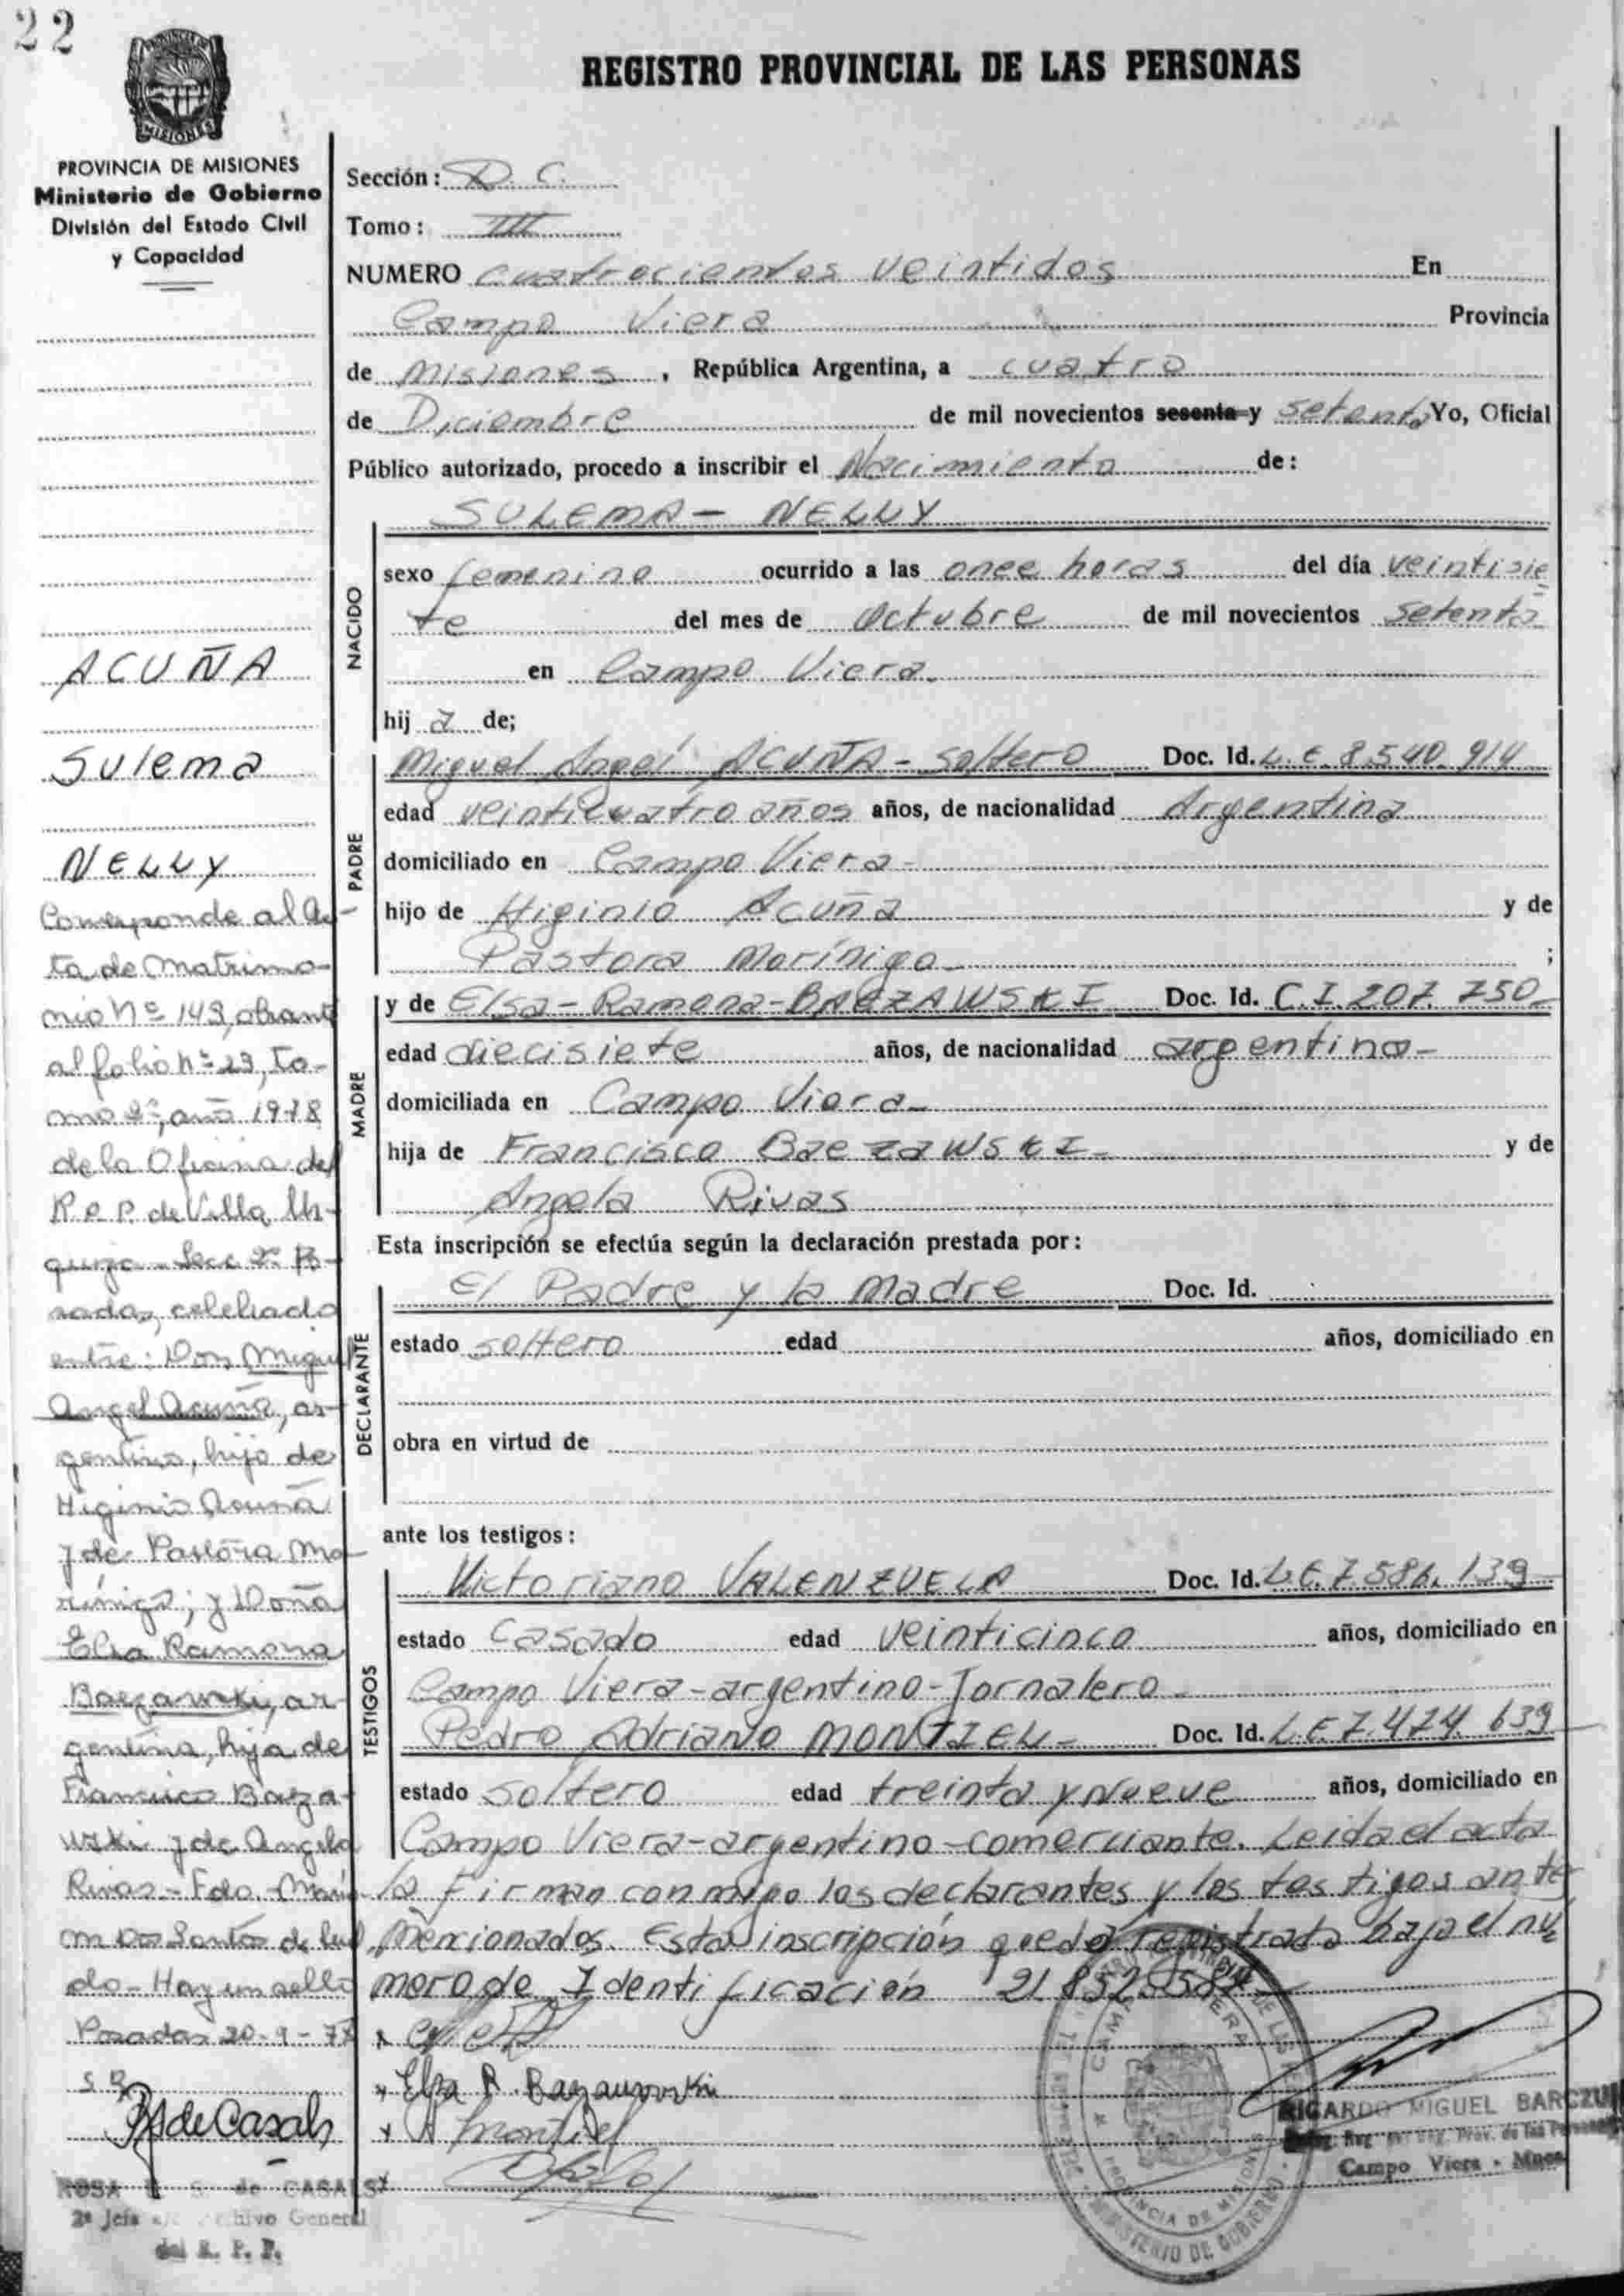 22
REGISTRO PROVINCIAL DE LAS PERSONAS
PROVINCIA DE MISIONES
Ministerio de Gobierno
División del Estado Civil
y Capacidad
ACUÑA
Sulema
NELLY
Corresponde al Ac-
ta de Matrimo-
nio Nº 149, obrante
al folio nº 29, To-
mo 2º, año 1978
de la Oficina del
R.P.P. de Villa Ur-
quiza - Secc 2º Po-
sadas, celebrado
entre: Don Miguel
Angel Acuña, ar-
gentino, hijo de
Higinio Acuña
y de Pastora Mo-
rínigo; y Doña
Elsa Ramona
Baezawski, ar-
gentina, hija de
Francisco Baeza-
wski y de Angela
Rivas - Fdo.
Dos Santos de
do - Hay un sello
Posadas 20-9-
RS de Casals
ROSA de CASALS
2ª Jefa Archivo General
del R. P. P.
Sección: D. C.
Tomo: III
NUMERO cuatrocientos veintidos En
Campo Viera Provincia
de Misiones, República Argentina, a cuatro
de Diciembre de mil novecientos sesenta y setenta Yo, Oficial
Público autorizado, procedo a inscribir el Nacimiento de:
SULEMA - NELLY
NACIDO
sexo femenino ocurrido a las once horas del día veintisie
te del mes de Octubre de mil novecientos setenta
en Campo Viera.
hij a de;
PADRE
Miguel Angel ACUÑA - soltero Doc. Id. L.E. 8.540.914
edad veinticuatro años años, de nacionalidad Argentina
domiciliado en Campo Viera-
hijo de Higinio Acuña y de
Pastora Morínigo- ;
MADRE
y de Elsa-Ramona-BAEZAWSKI Doc. Id. C.I. 207.750-
edad diecisiete años, de nacionalidad argentina-
domiciliada en Campo Viera-
hija de Francisco BaezaWSKI- y de
Angela Rivas
Esta inscripción se efectúa según la declaración prestada por:
DECLARANTE
El Padre y la Madre Doc. Id.
estado soltero edad años, domiciliado en
obra en virtud de
ante los testigos:
TESTIGOS
Victoriano VALENZUELA Doc. Id. L.E. 7.586.139
estado Casado edad veinticinco años, domiciliado en
Campo Viera-argentino-Jornalero-
Pedro Adriano MONTIEL- Doc. Id. L.E. 7.474.639
estado soltero edad treinta y Nueve años, domiciliado en
Campo Viera-argentino-comerciante. Leida el acta
la firman conmigo los declarantes y los testigos ante
Mencionados. Esta inscripción queda registrada bajo el nú
mero de Identificación 21.852.584
Elsa R. Bazauwski
A Montiel
CAMPO VIERA
PROVINCIA DE MISIONES
MINISTERIO DE GOBIERNO
RICARDO MIGUEL BARCZUK
Prov. de las Personas
Campo Viera - Mnes